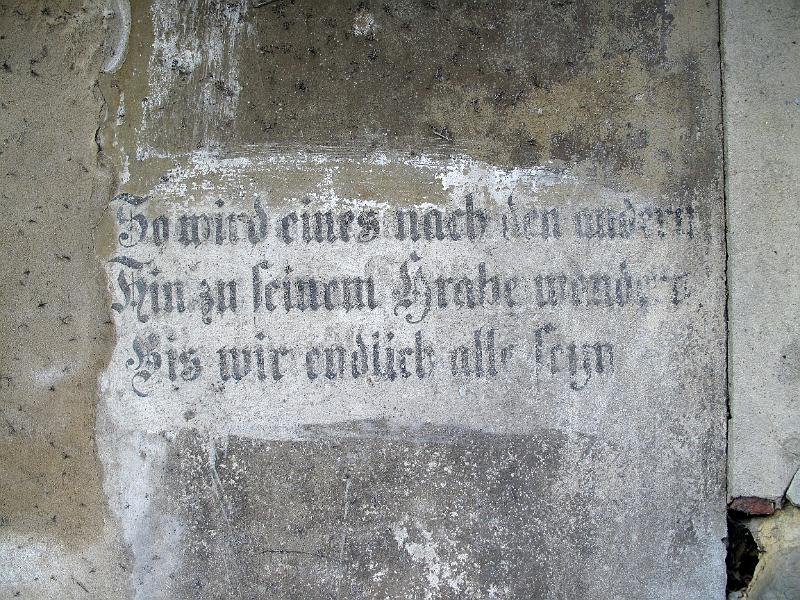 So wird eines nach den andern
Hin zu seinem Grabe wandern
Bis wir endlich alle seyn